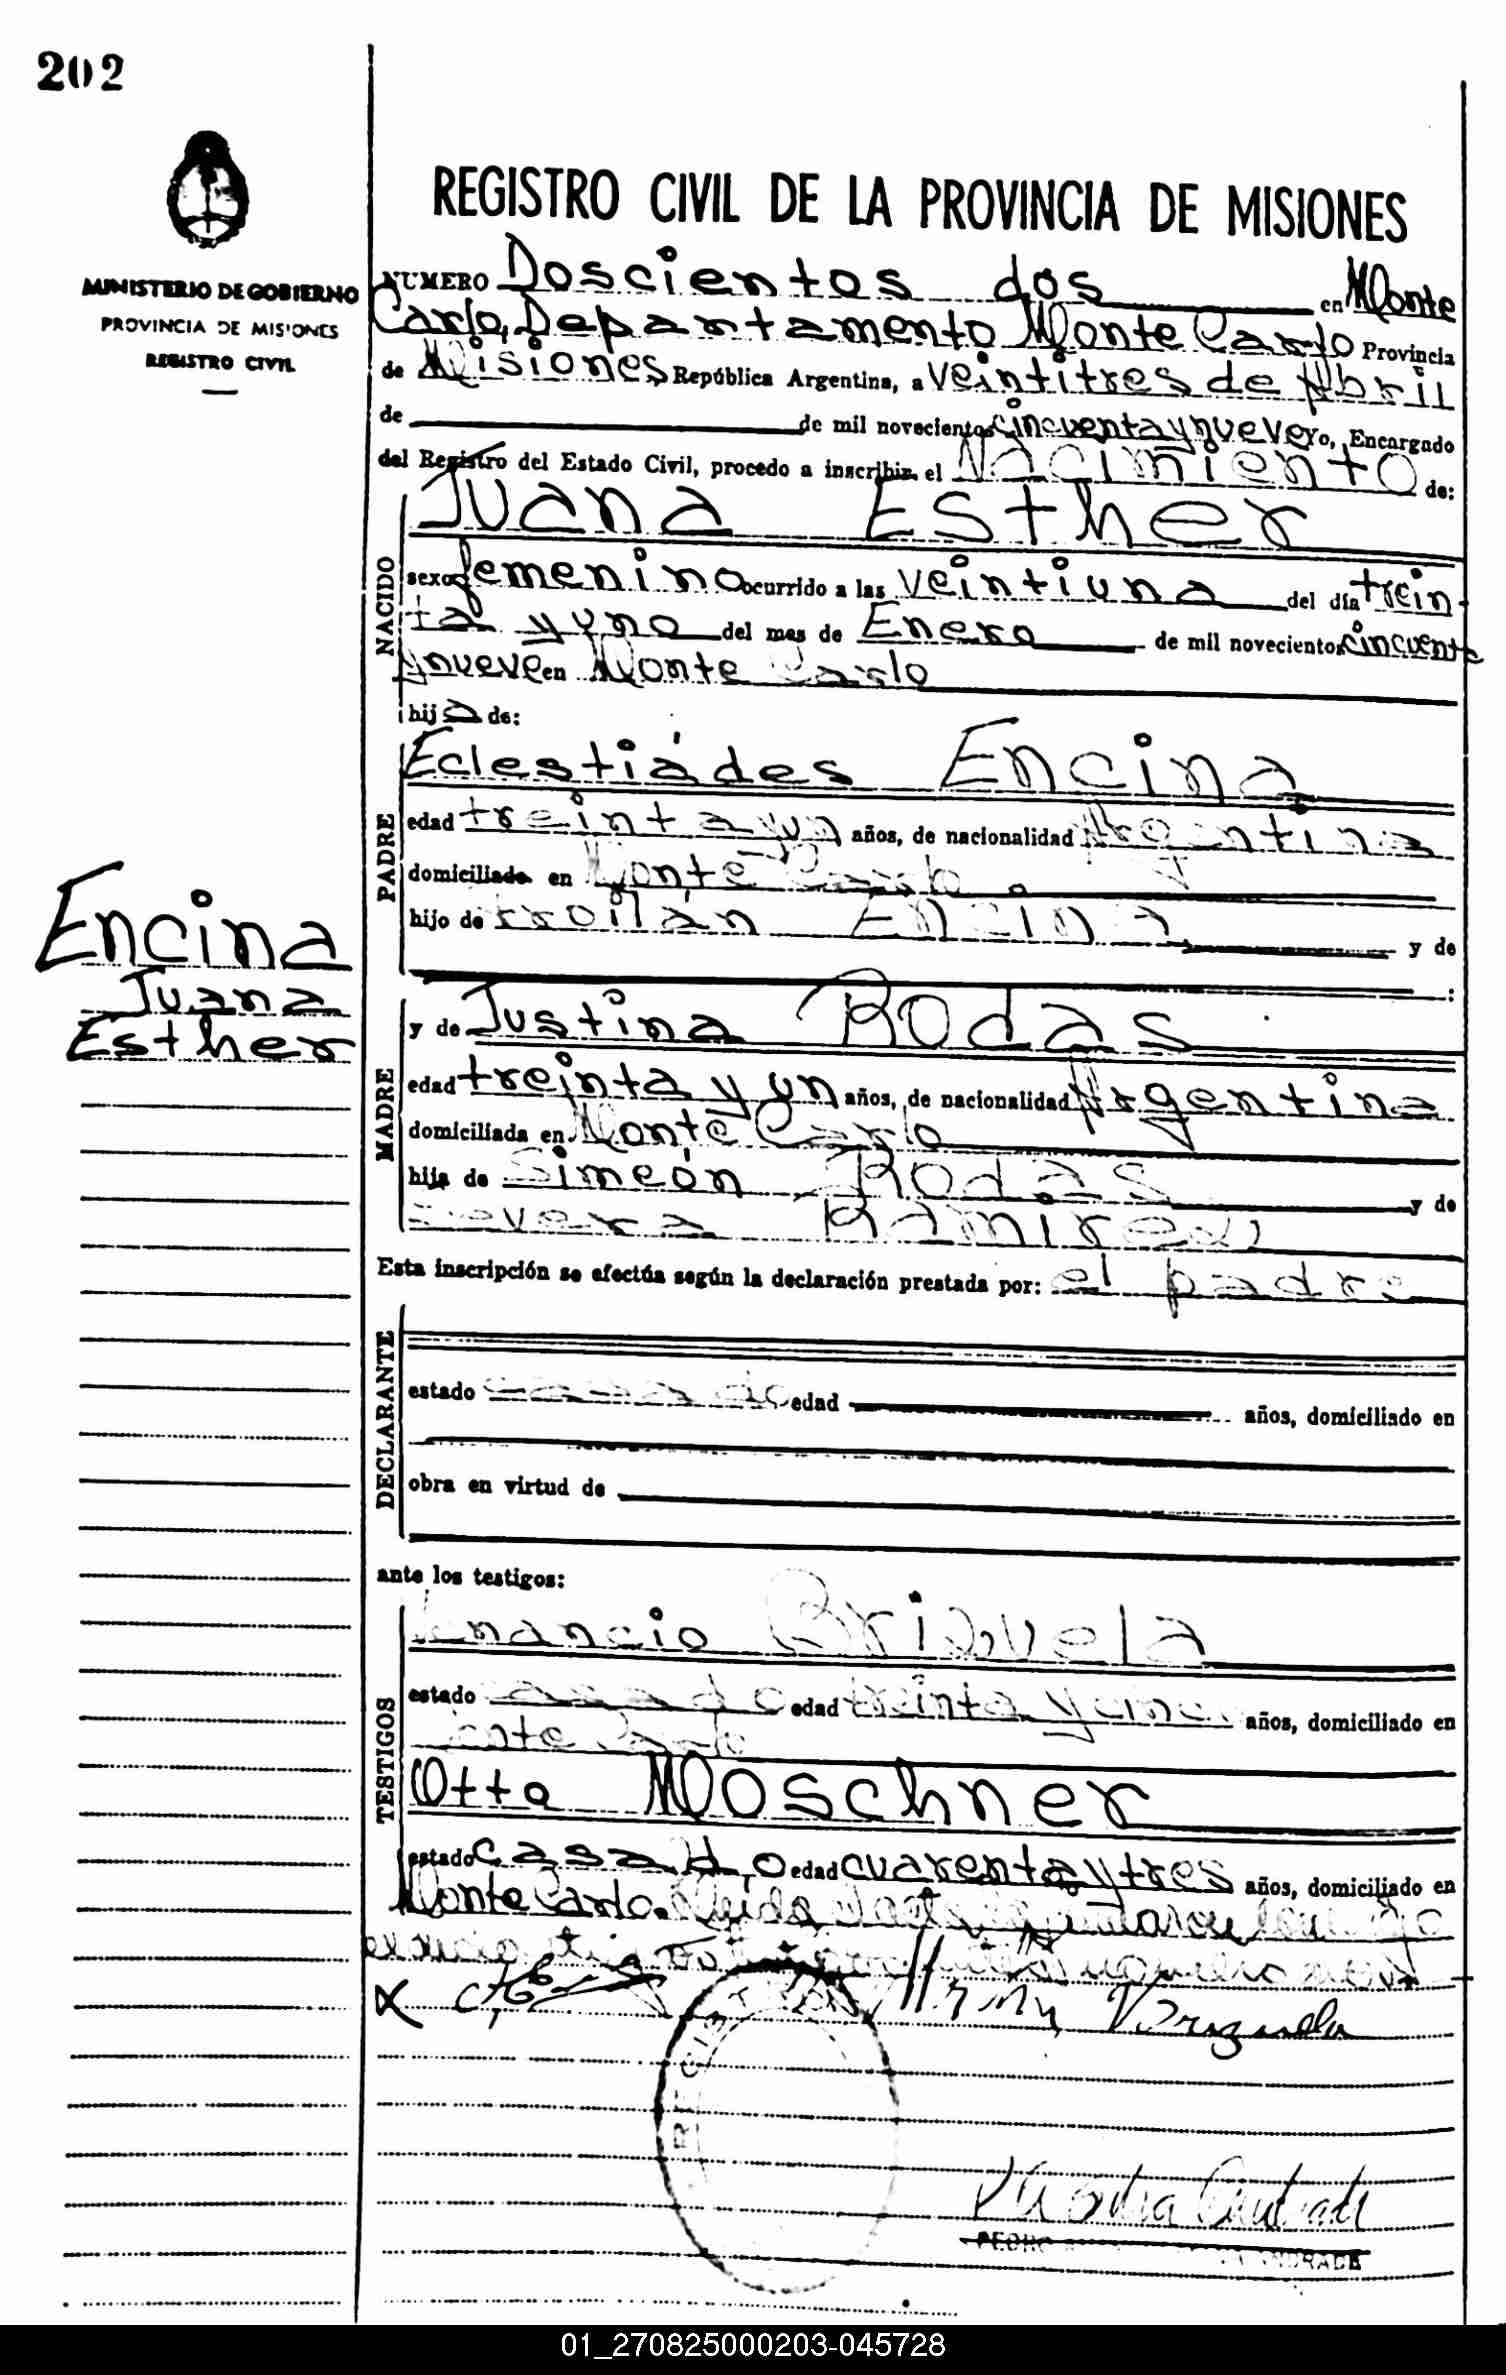 202
MINISTERIO DE GOBIERNO
PROVINCIA DE MISIONES
REGISTRO CIVIL
REGISTRO CIVIL DE LA PROVINCIA DE MISIONES
NUMERO Doscientos dos en Monte
Carlo, Departamento Monte Carlo Provincia
de Misiones República Argentina, a veintitres de Abril
de de mil novecientos cincuentaynueve Yo, Encargado
del Registro del Estado Civil, procedo a inscribir el Nacimiento de:
NACIDO
Juana Esther
sexo femenino ocurrido a las veintiuna del día trein-
ta y uno del mes de Enero de mil novecientos cincuenta
ynueve en Monte Carlo
hija de:
PADRE
Eclestiádes Encina
edad treinta y un años, de nacionalidad Argentina
domiciliado en Monte Carlo
hijo de troilán Encina y de
Encina
Juana
Esther
MADRE
y de Justina Rodas
edad treinta y un años, de nacionalidad Argentina
domiciliada en Monte Carlo
hija de Simeón Rodas y de
Ramirez
Esta inscripción se efectúa según la declaración prestada por: el padre
DECLARANTE
estado casado edad años, domiciliado en
obra en virtud de
ante los testigos:
TESTIGOS
Brizuela
estado casado edad treinta y cinco años, domiciliado en
Monte Carlo
Otto Moschner
estado casado edad cuarentaytres años, domiciliado en
Monte Carlo. Leida el acta
Brizuela
REGIST
PEDRO ANDRADE
01_270825000203-045728